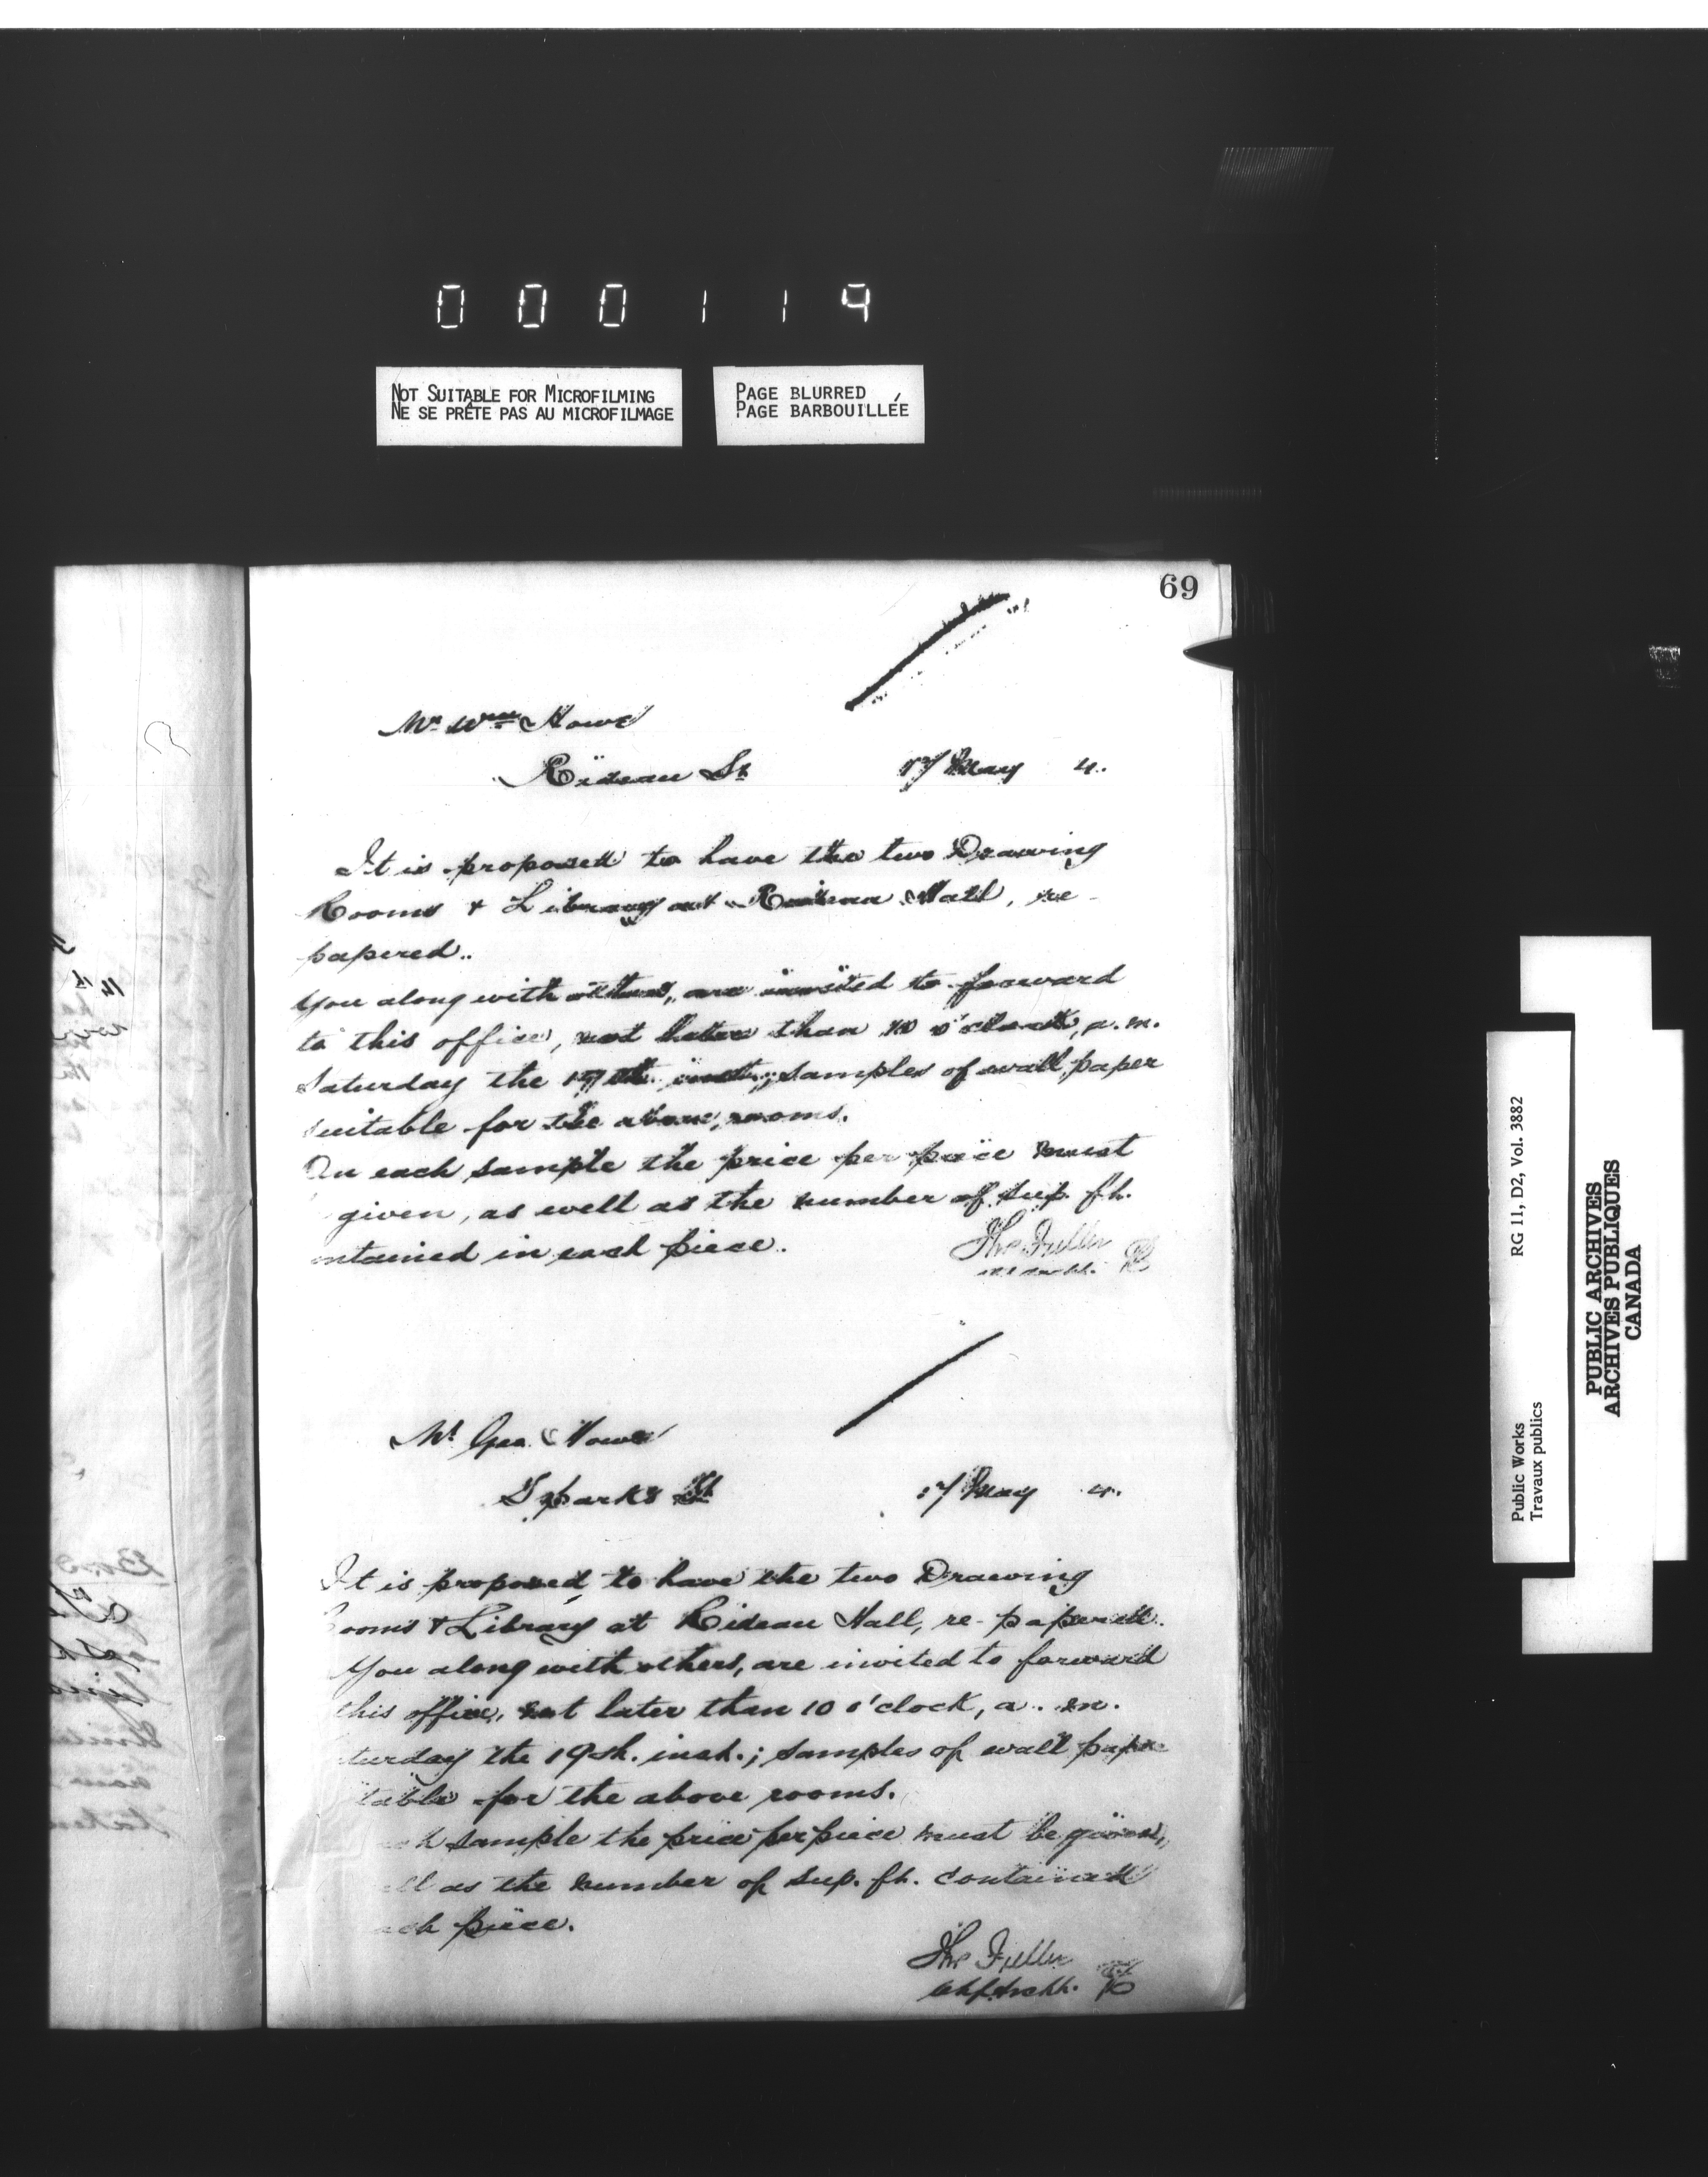 000119
NOT SUITABLE FOR MICROFILMING
NE SE PRÊTE PAS AU MICROFILMAGE
PAGE BLURRED
PAGE BARBOUILLÉE
69
Mr Wm Howe
Rideau St 17 May 4.
It is proposed to have the two Drawing
Rooms & Library at Rideau Hall, re-
papered.
You along with others, are invited to forward
to this office, not later than 10 o'clock, a.m.
Saturday the 19th inst.; samples of wall paper
suitable for the above rooms.
On each sample the price per piece must
given, as well as the number of sup. ft.
ntained in each piece.
Thos Fuller
Mr Geo. Howe
Sparks St 17 May 4.
It is proposed to have the two Drawing
ooms & Library at Rideau Hall, re-papered.
You along with others, are invited to forward
this office, not later than 10 o'clock, a.m.
turday the 19th. inst.; samples of wall paper
table for the above rooms.
ch sample the price per piece must be given,
ell as the number of sup. ft. contained
ach piece.
Thos Fuller
Chf. Archt.
Public Works RG 11, D2, Vol. 3882
Travaux publics
PUBLIC ARCHIVES
ARCHIVES PUBLIQUES
CANADA